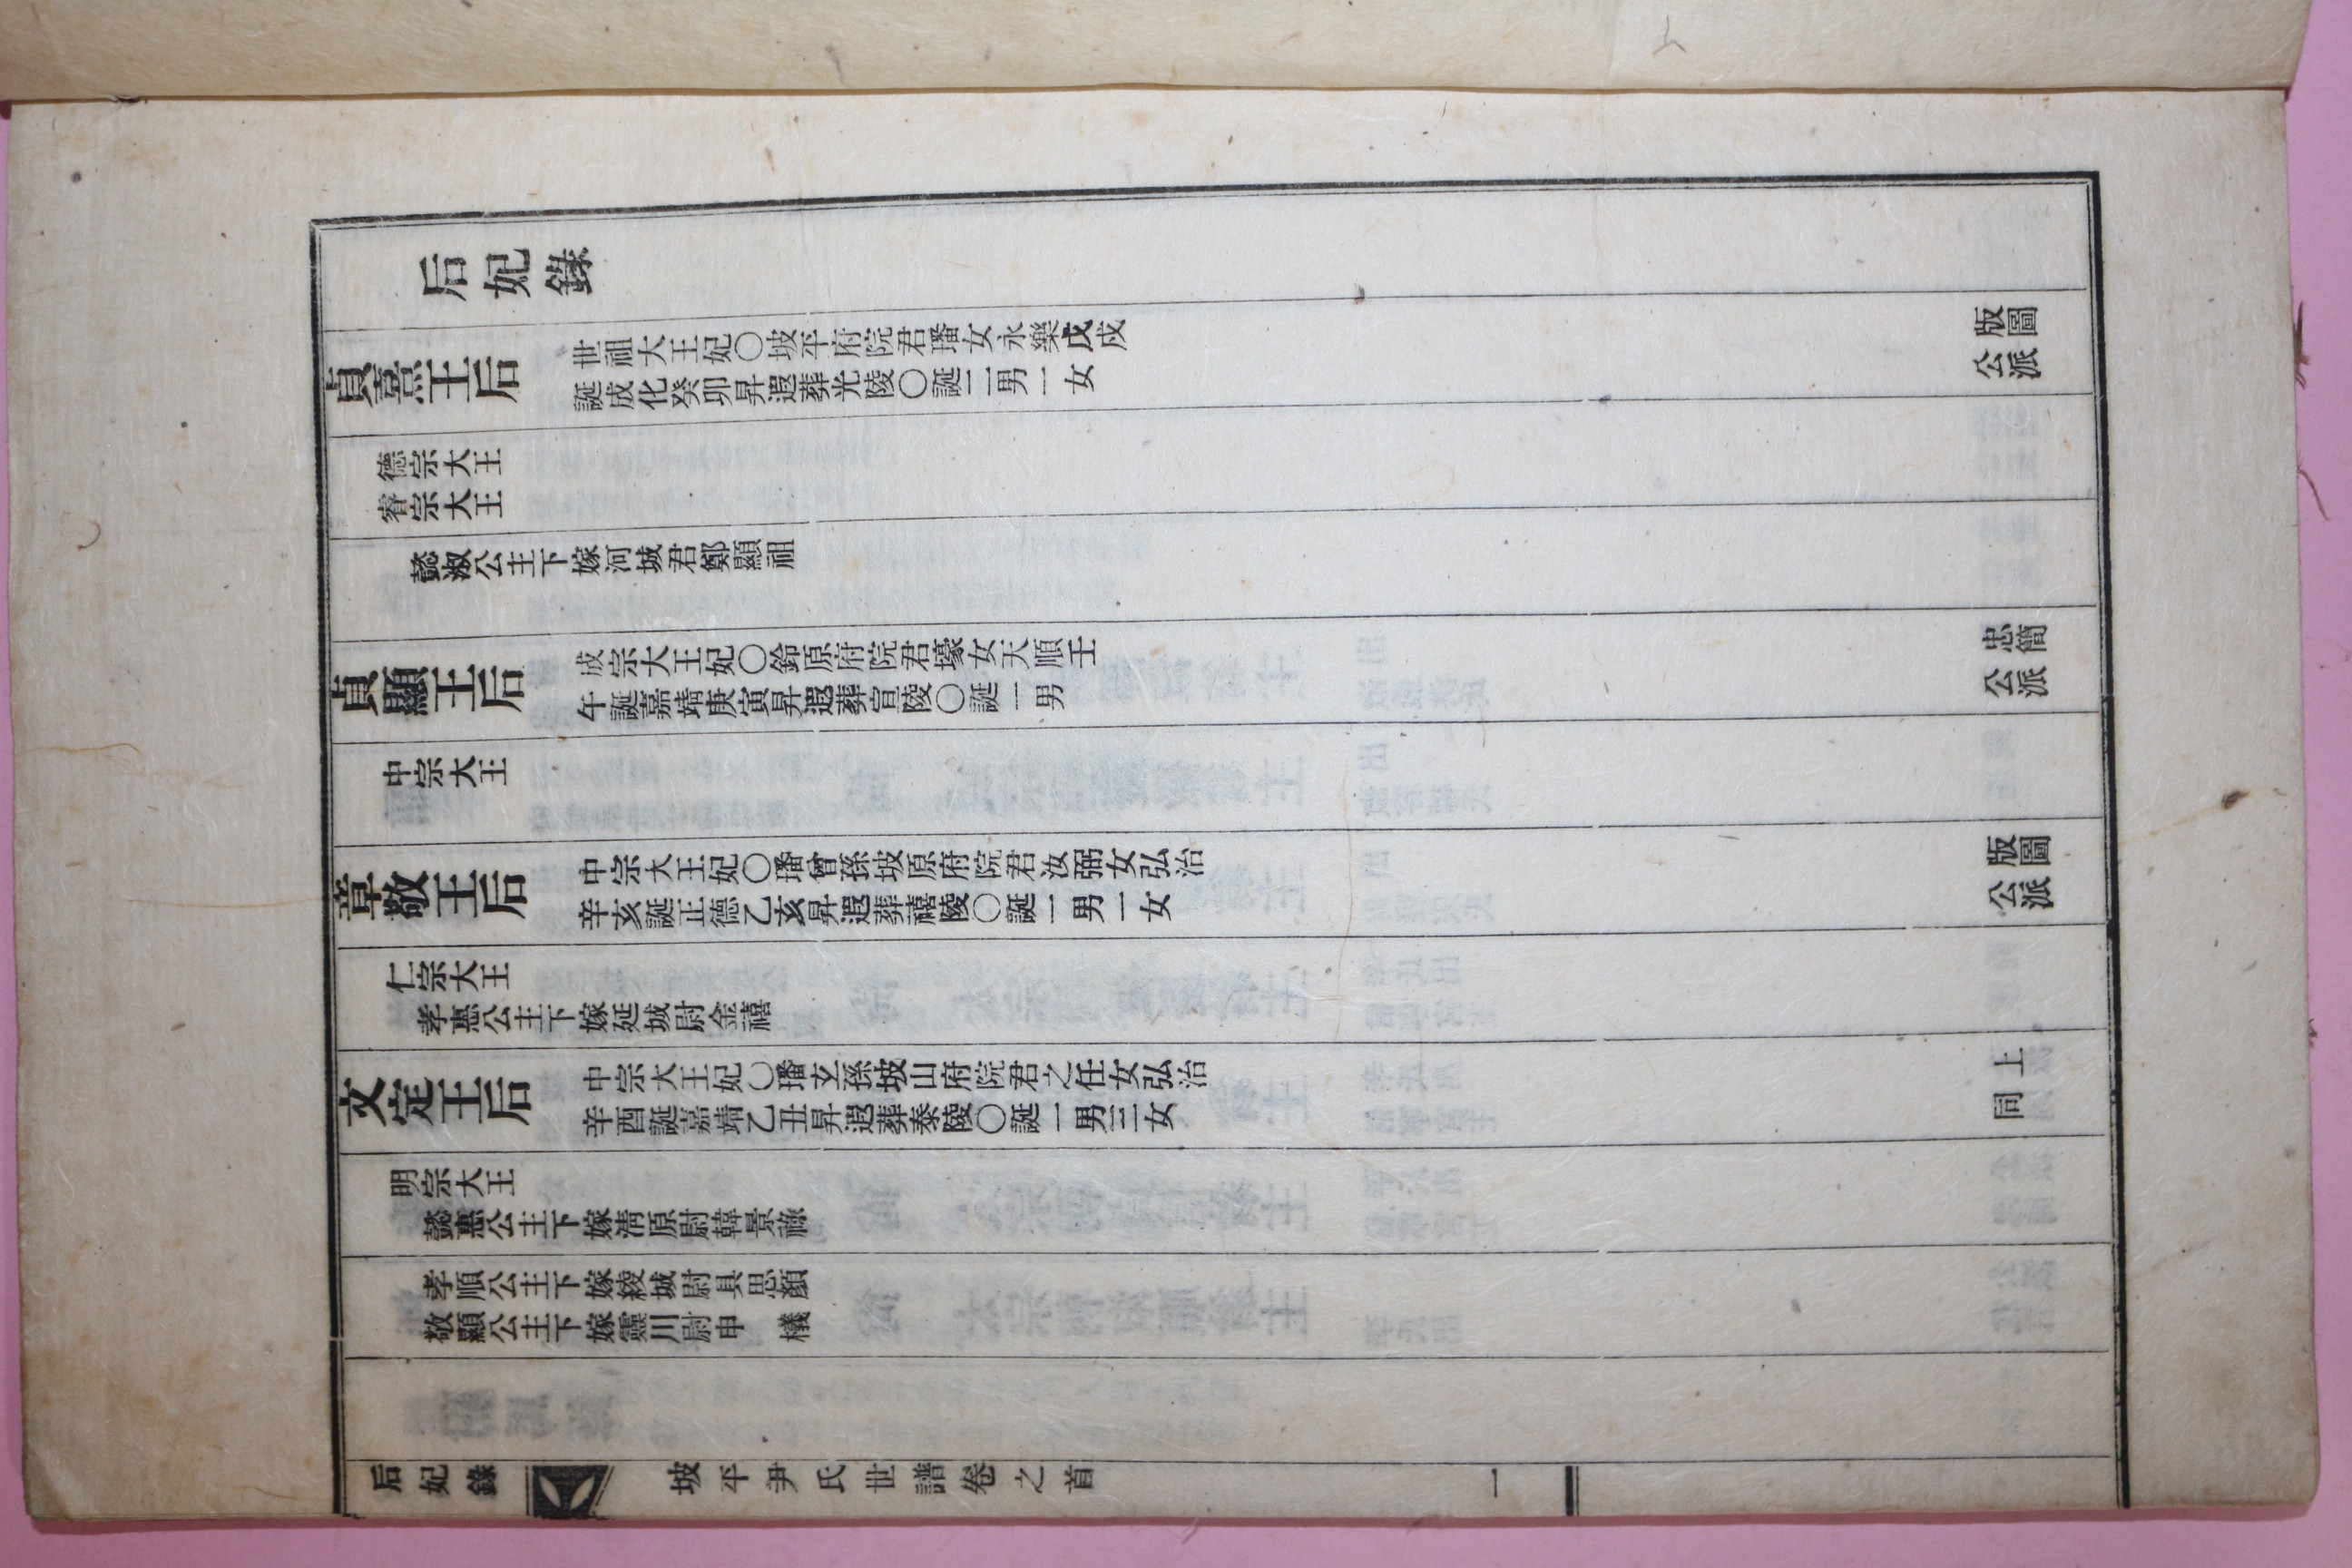 后妃錄
貞熹王后
世祖大王妃〇坡平府院君璠女永樂戊戌
誕成化癸卯昇遐葬光陵〇誕二男一女
版圖
公派
德宗大王
睿宗大王
懿淑公主下嫁河城君鄭顯祖
貞顯王后
成宗大王妃〇鈴原府院君壕女天順壬
午誕嘉靖庚寅昇遐葬宣陵〇誕一男
忠簡
公派
中宗大王
章敬王后
中宗大王妃〇璠曾孫坡原府院君汝弼女弘治
辛亥誕正德乙亥昇遐葬禧陵〇誕一男一女
版圖
公派
仁宗大王
孝惠公主下嫁延城尉金禧
文定王后
中宗大王妃〇璠玄孫坡山府院君之任女弘治
辛酉誕嘉靖乙丑昇遐葬泰陵〇誕一男三女
同上
明宗大王
懿惠公主下嫁淸原尉韓景祿
孝順公主下嫁綾城尉具思顏
敬顯公主下嫁靈川尉申檥
后妃錄
坡平尹氏世譜卷之首
一